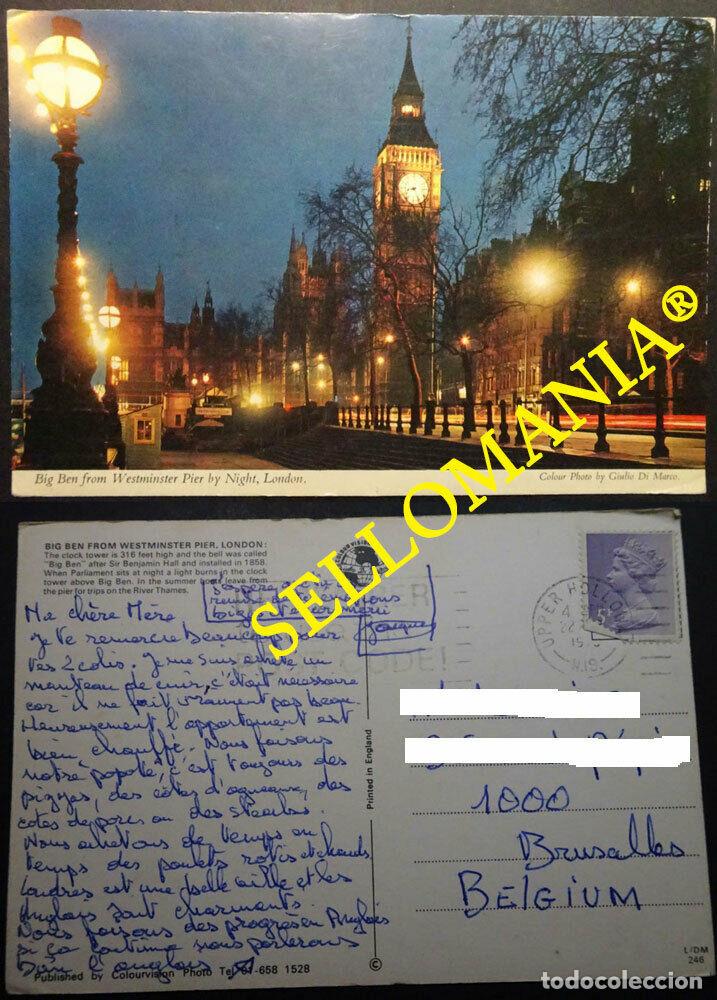 Big Ben from Westminster Pier by Night, London.
Colour Photo by Giulio Di Marco.
SELLOMANIA®
BIG BEN FROM WESTMINSTER PIER, LONDON:
The clock tower is 316 feet high and the bell was called
"Big Ben" after Sir Benjamin Hall and installed in 1858.
When Parliament sits at night a light burns in the clock
tower above Big Ben. In the summer boats leave from
the pier for trips on the River Thames.
Jacques
Ma chère Mère
Je te remercie beaucoup pour
tes 2 colis. Je me suis acheté un
manteau de cuir, c'était nécessaire
car il ne fait vraiment pas beau.
Heureusement l'appartement est
bien chauffé. Nous faisons
notre popote, c'est toujours des
pizzas, des côtes d'agneau, des
cotes de porc ou des steaks.
Nous achetons de temps en
temps des poulets rotis et chauds.
Londres est une belle ville et les
Anglais sont charmants.
Nous faisons des progrès en Anglais
si ça continue nous parlerons
bien l'anglais
Published by Colourvision Photo Tel 01-658 1528
Printed in England
©
UPPER HOLLOW
N.19.
CODE!
1000
Bruxelles
BELGIUM
L/DM
246
todocoleccion